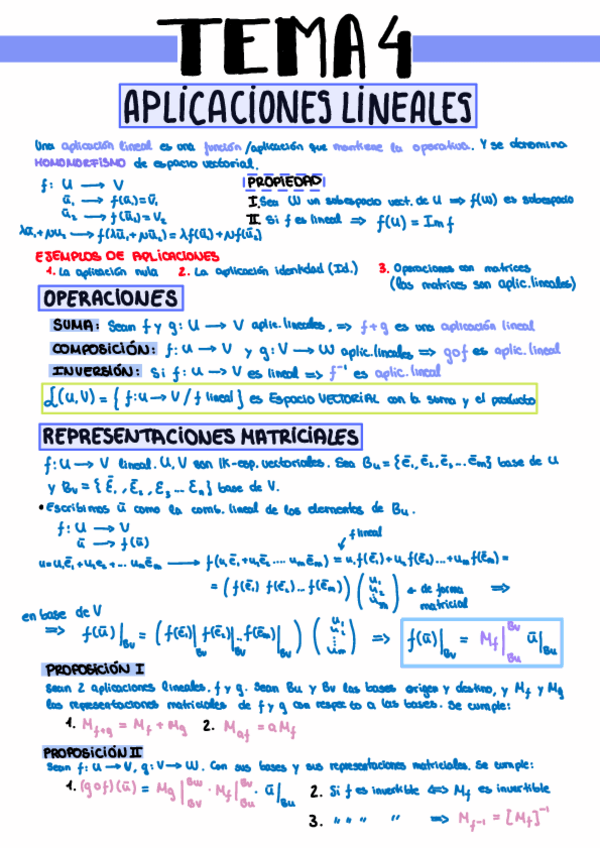 TEMA 4
APLICACIONES LINEALES
Una aplicación lineal es una función/aplicación que mantiene la operativa. Y se denomina
HOMOMORFISMO de espacio vectorial.
f: U → V
ū₁ → f(ū₁)=v̄₁
ū₂ → f(ū₂)=V₂
λū₁+μū₂ → f(λū₁+μū₂)=λf(ū₁)+μf(ū₂)
PROPIEDAD
I. Sea W un subespacio vect. de U ⇒ f(W) es subespacio
II. Si f es lineal ⇒ f(U) = Im f
EJEMPLOS DE APLICACIONES
1. La aplicación nula 2. La aplicación identidad (Id.) 3. Operaciones con matrices
(las matrices son aplic. lineales)
OPERACIONES
SUMA: Sean f y g: U → V aplic. lineales, ⇒ f+g es una aplicación lineal
COMPOSICIÓN: f: U → V y g: V → W aplic. lineales ⇒ gof es aplic. lineal
INVERSIÓN: Si f: U → V es lineal ⇒ f⁻¹ es aplic. lineal
L(U,V) = { f: U → V / f lineal } es Espacio VECTORIAL con la suma y el producto
REPRESENTACIONES MATRICIALES
f: U → V lineal. U, V son IK-esp. vectoriales. Sea Bu = {ē₁, ē₂, ē₃, ... ēm} base de U
y Bv = {Ē₁, Ē₂, Ē₃ ... Ēn} base de V.
• Escribimos ū como la comb. lineal de los elementos de Bu.
f: U → V
ū → f(ū)
f lineal
u = u₁ē₁+u₂e₂+... umēm → f(u₁ē₁+u₂ē₂ .... umēm) = u₁f(ē₁)+u₂f(ē₂)...+umf(ēm) =
= (f(ē₁) f(ē₂) ... f(ēm)) (u₁ u₂ ⋮ um) ← de forma matricial ⇒
en base de V
⇒ f(ū)|Bv = (f(ē₁)|Bv f(ē₂)|Bv ... f(ēm)|Bv) (u₁ u₂ ⋮ um) ⇒ f(ū)|Bv = Mf|Bv Bu ū|Bu
PROPOSICIÓN I
Sean 2 aplicaciones lineales, f y g. Sean Bu y Bv las bases origen y destino, y Mf y Mg
las representaciones matriciales de f y g con respecto a las bases. Se cumple:
1. Mf+g = Mf + Mg 2. Maf = aMf
PROPOSICIÓN II
Sean f: U → V, g: V → W. Con sus bases y sus representaciones matriciales. Se cumple:
1. (gof)(ū) = Mg|Bw Bv · Mf|Bv Bu · ū|Bu 2. Si f es invertible ⇔ Mf es invertible
3. " " " " ⇒ Mf⁻¹ = [Mf]⁻¹